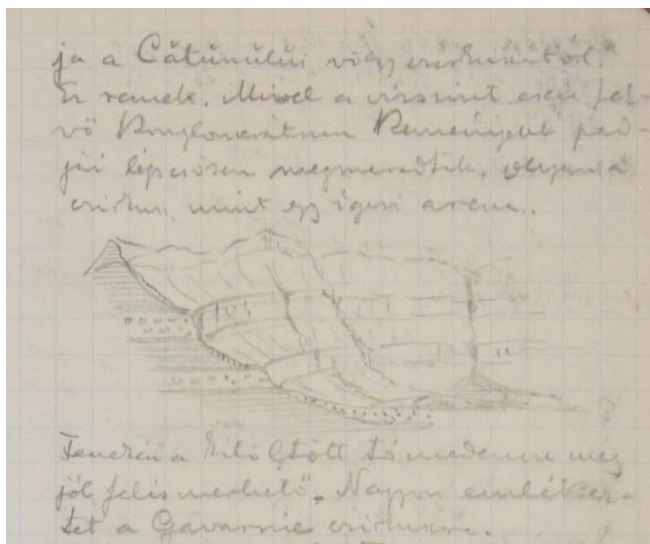 ja a Cătunului völgy cirkuszától.
Ez remek. Mivel a vízszint esén fek-
vő Konglomerátum Keményebb pad-
jai lépcsősen megmaradtak, olyan a
cirkus, mint egy igazi arena.
Fenekén a kitöltött tómedence még
jól felismerhető. Nagyon emlékez-
tet a Gavarnie cirkusra.